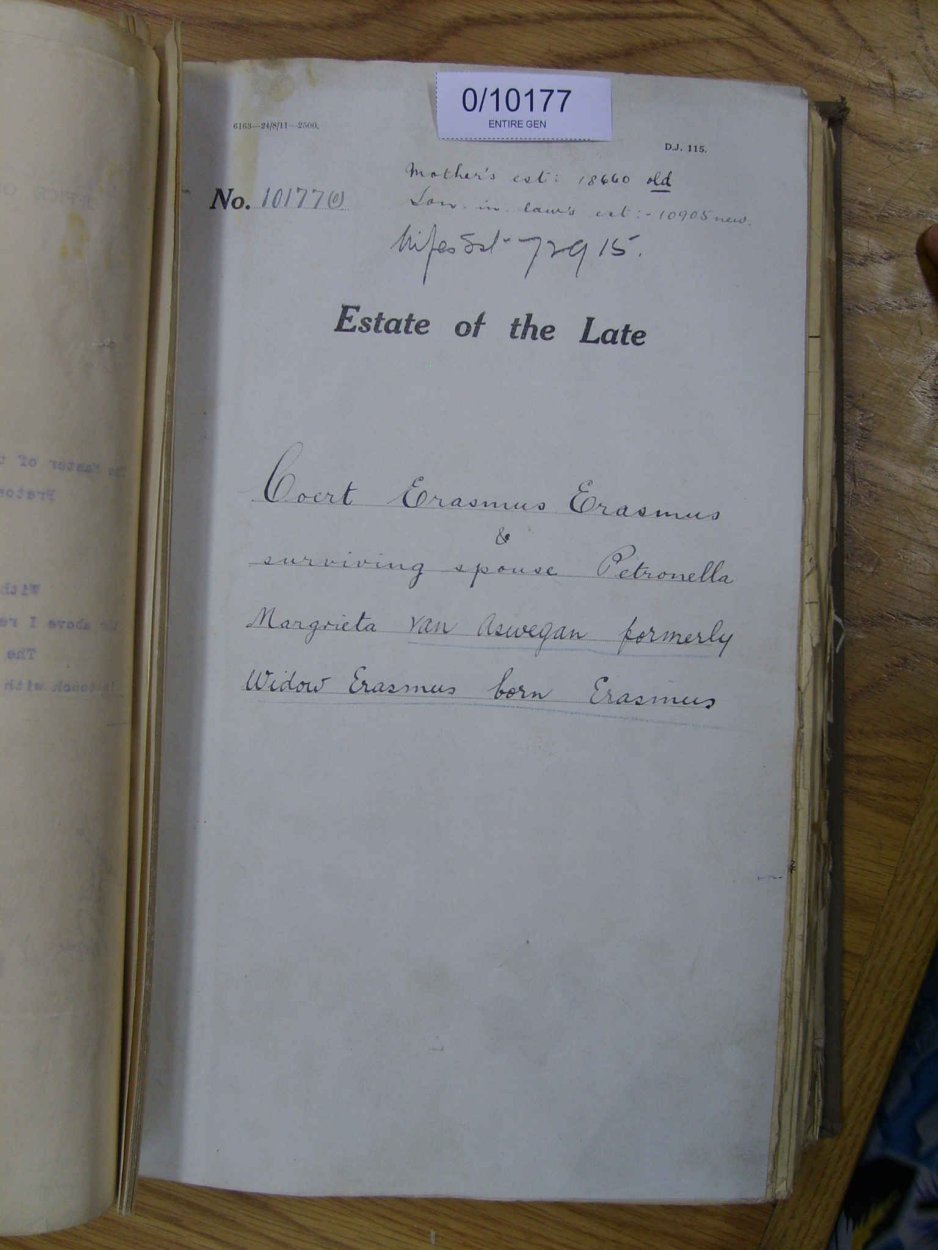 0/10177
ENTIRE GEN
6163—24/8/11—2500.
D.J. 115.
Mother's est: 18660 old
No. 10177(0)
Son in law's est:- 10905 new.
Wifes Est 72915.
Estate of the Late
Coert Erasmus Erasmus
&
surviving spouse Petronella
Margrieta van Aswegan formerly
Widow Erasmus born Erasmus
Master of
Pretor
With
above I re
The
touch with